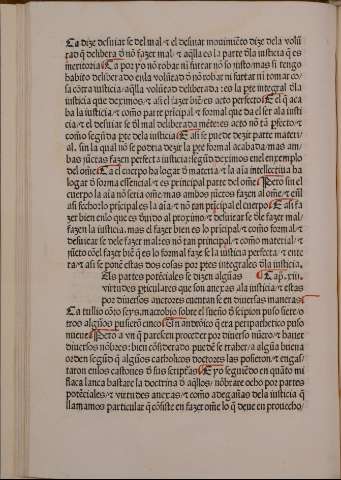 Ca dize desuiar se del mal ⁊ el desuiar mouimiēto dize dela volū
tad q̄ delibera d̄ nō fazer mal ⁊ aq̄lla es la parte dla iusticia q̄ es
meritoria Ca por yo nō robar ni furtar nō so iusto mas si tengo
habito deliberado enla volūtad d̄ nō robar ni furtar ni tomar co/
sa cōtra iusticia aq̄lla volūtad deliberada es la pte integral dla
iusticia que deximos ⁊ asi el fazer biē es acto perfecto El q̄ aca
ba la iusticia ⁊ como parte prīcipal ⁊ formal que da el ser ala iusti
cia ⁊ el desuiar se dl mal deliberada mēte es acto nō tā pfecto ⁊
como segūda pte dela iusticia E asi se puede dezir parte materi/
al. sin la qual nō se podria dezir la pte formal acabada mas am/
bas jūctas fazen perfecta iusticia segūd deximos enel enxemplo
del ome Ca el cuerpo ha logar d̄ materia ⁊ la aīa intellectiua ha
logar d̄ forma essencial ⁊ es principal parte del ome Pero sin el
cuerpo la aīa nō seria ome mas ambos jūctos fazen al ome ⁊ ni
asi fecho lo prīcipal es la aīa ⁊ nō tan prīcipal el cuerpo E asi fa/
zer bien enlo que es d̄uido al proximo ⁊ desuiar se dle fazer mal
fazen la iusticia. mas el fazer bien es lo prīcipal ⁊ como formal ⁊
desuiar se dele fazer mal es nō tan prīcipal ⁊ como material ⁊
jūcto cōel fazer biē q̄ es lo formal faze se la iusticia perfecta ⁊ ente
ra ⁊ asi se pone estas dos cosas por ptes integrales dla iusticia.
Las partes potēciales se dizen algūas Cap. xiii.
virtudes pticulares que son anexas ala iusticia ⁊ estas
por diuersos auctores cuentan se en diuersas maneras
Ca tullio como seys. macrobio sobre el sueño d̄ scipion puso siete o
tros algūos pusierō cinco Un andronico q̄ era peripathetico puso
nueue Pero a vn q̄ parescen proceder por diuerso nuero ⁊ hauer
diuersos nōbres bien cōsiderado puede se trabar a algūa buena
orden segūd q̄ algūos catholicos doctores las posieron ⁊ engas/
taron enlos castones d̄ sus scriptas E yo seguiēdo en quāto mi
flaca lanca bastare la doctrina d̄ aq̄llos nōbrare ocho por partes
potēciales ⁊ virtudes anexas ⁊ como adegañas dela iusticia q̄
llamamos particular q̄ cōsiste en fazer ome lo q̄ deue en prouecho/